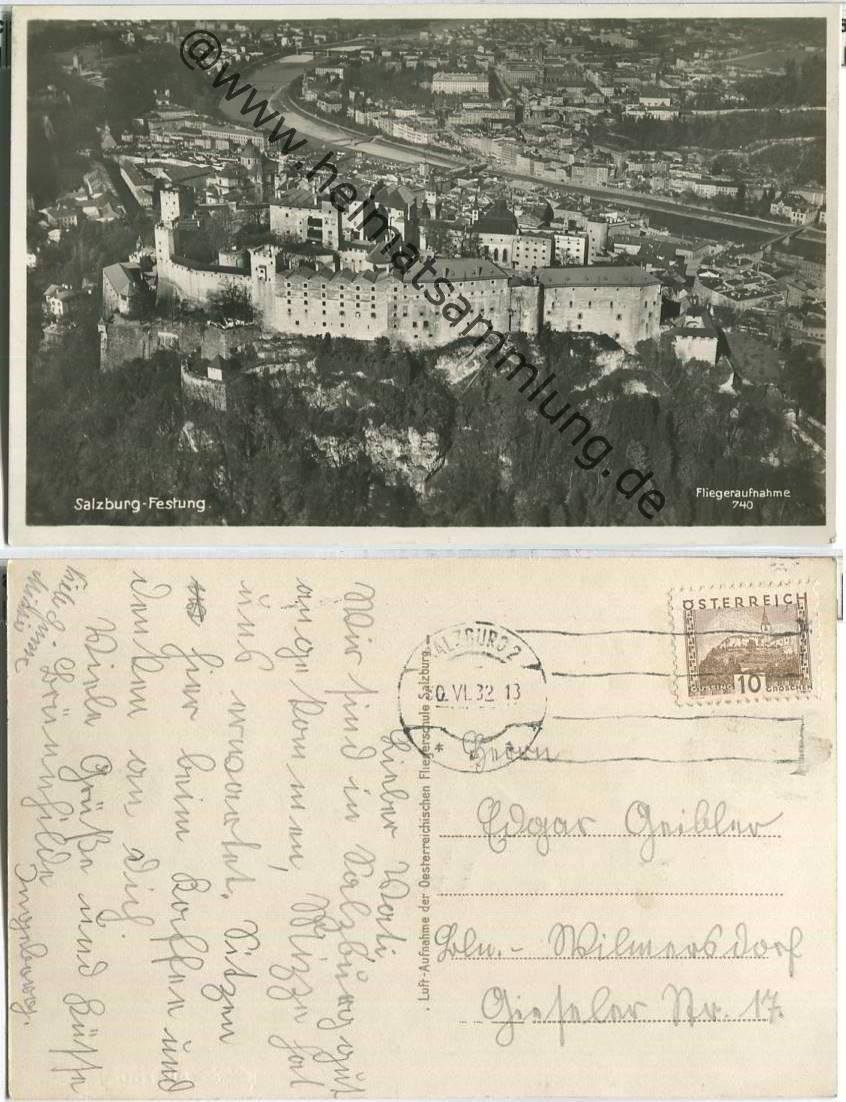 @www.heimatsammlung.de
Salzburg-Festung
Fliegeraufnahme
740
ÖSTERREICH
10
GROSCHEN
SALZBURG 2
0. VI. 32 13
Luft-Aufnahme der Oesterreichischen Fliegerschule Salzburg.
Herrn
Edgar Geibler
Bln.- Wilmersdorf
Gieseler Str. 17.
Lieber Vati
Wir sind in Salzburg gut
angekommen, Mizze hat
uns erwartet. Sitzen
hier beim Kaffee und
denken an Dich
Viele Grüße und Küsse
Brünnhilde Ingeborg.